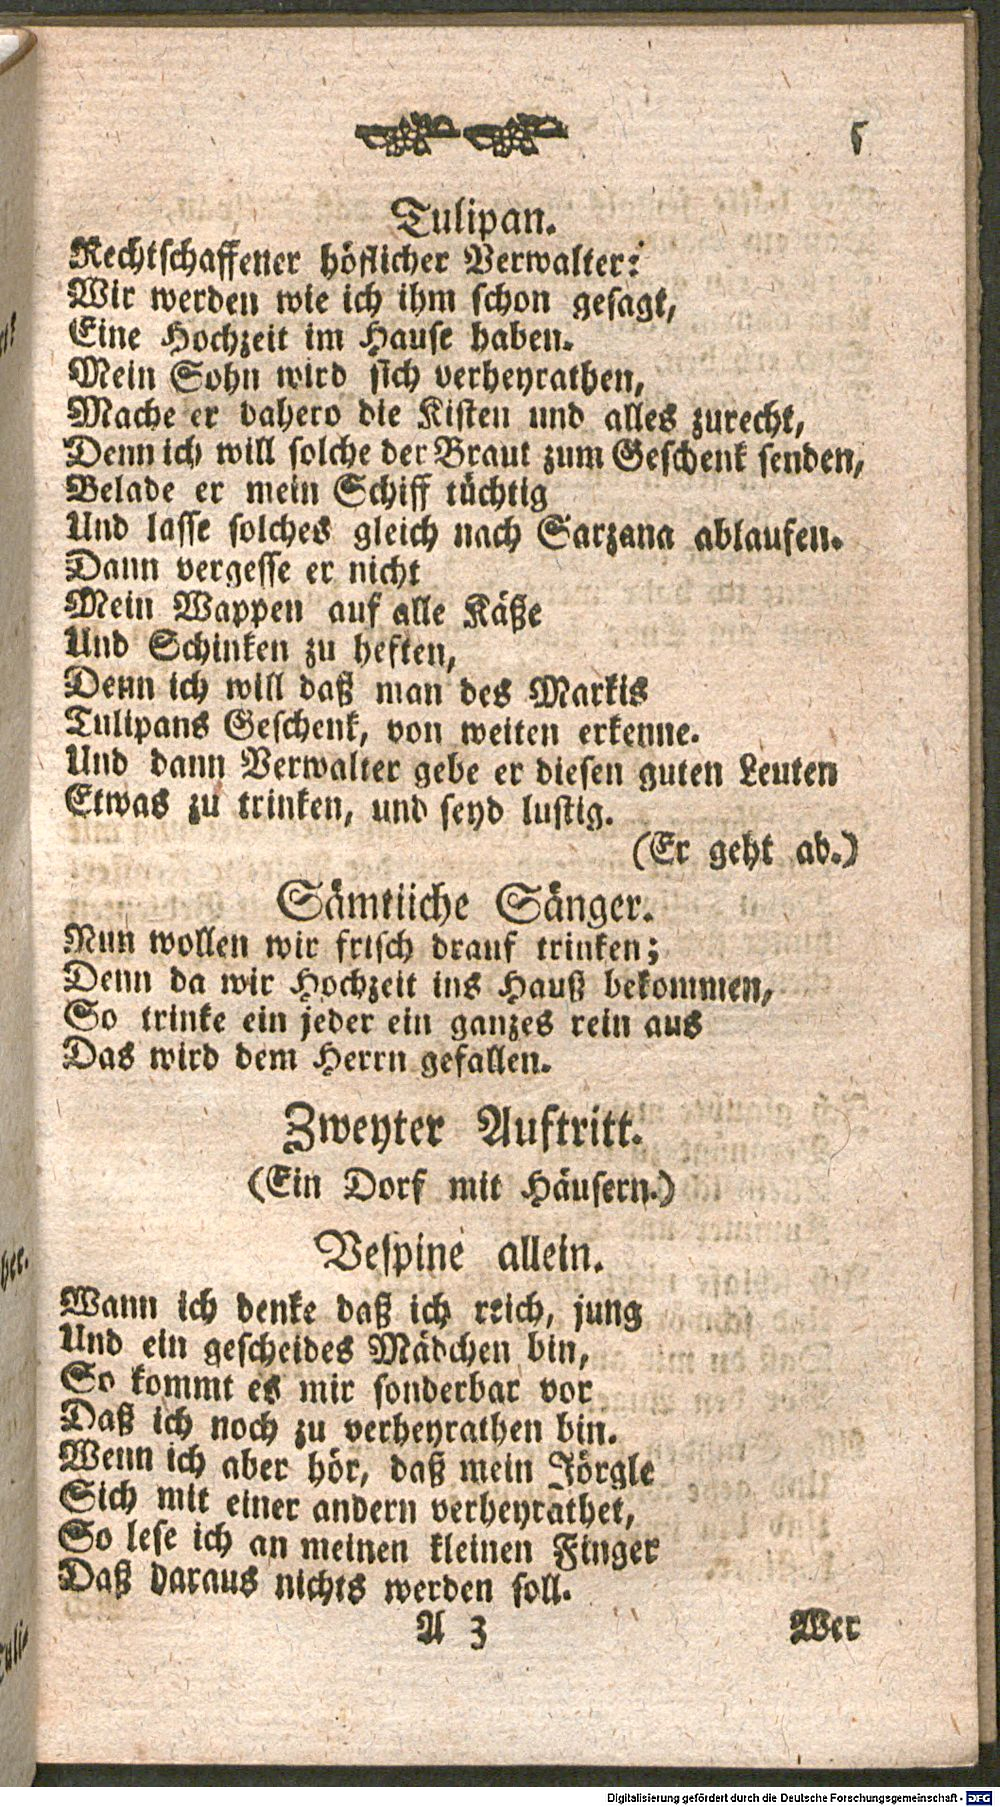 5
Tulipan.
Rechtschaffener höflicher Verwalter:
Wir werden wie ich ihm schon gesagt,
Eine Hochzeit im Hause haben.
Mein Sohn wird sich verheyrathen,
Mache er dahero die Kisten und alles zurecht,
Denn ich will solche der Braut zum Geschenk senden,
Belade er mein Schiff tüchtig
Und lasse solches gleich nach Sarzana ablaufen.
Dann vergesse er nicht
Mein Wappen auf alle Käße
Und Schinken zu heften,
Denn ich will daß man des Markis
Tulipans Geschenk, von weiten erkenne.
Und dann Verwalter gebe er diesen guten Leuten
Etwas zu trinken, und seyd lustig.
(Er geht ab.)
Sämtliche Sänger.
Nun wollen wir frisch drauf trinken;
Denn da wir Hochzeit ins Hauß bekommen,
So trinke ein jeder ein ganzes rein aus
Das wird dem Herrn gefallen.
Zweyter Auftritt.
(Ein Dorf mit Häusern.)
Vespine allein.
Wann ich denke daß ich reich, jung
Und ein gescheides Mädchen bin,
So kommt es mir sonderbar vor
Daß ich noch zu verheyrathen bin.
Wenn ich aber hör, daß mein Jörgle
Sich mit einer andern verheyrathet,
So lese ich an meinen kleinen Finger
Daß daraus nichts werden soll.
A 3 Wer
Digitalisierung gefördert durch die Deutsche Forschungsgemeinschaft - DFG